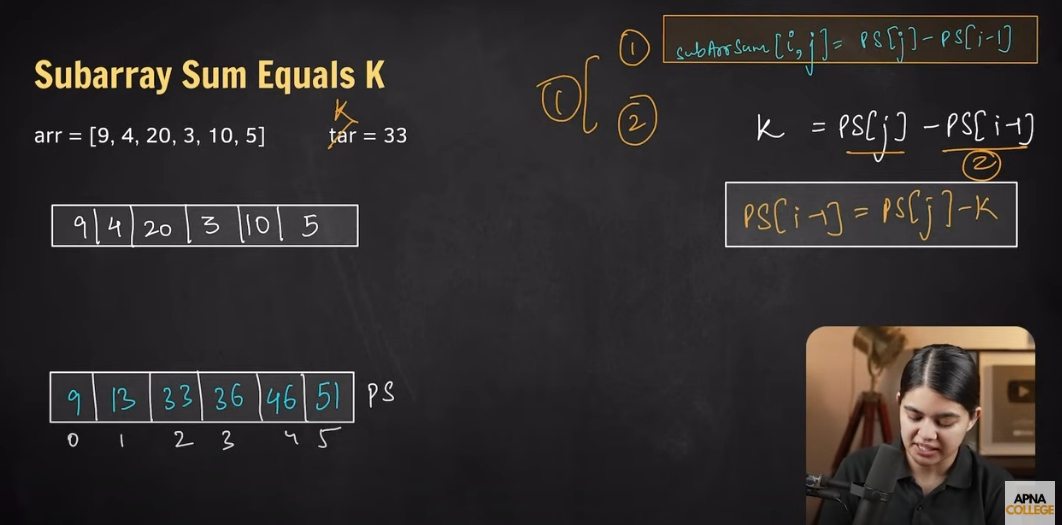 Subarray Sum Equals K
K
arr = [9, 4, 20, 3, 10, 5] tar = 33
9 4 20 3 10 5
9 13 33 36 46 51 PS
0 1 2 3 4 5
① ①
②
subArrSum[i,j] = PS[j] - PS[i-1]
K = PS[j] - PS[i-1]
②
PS[i-1] = PS[j] - K
APNA
COLLEGE